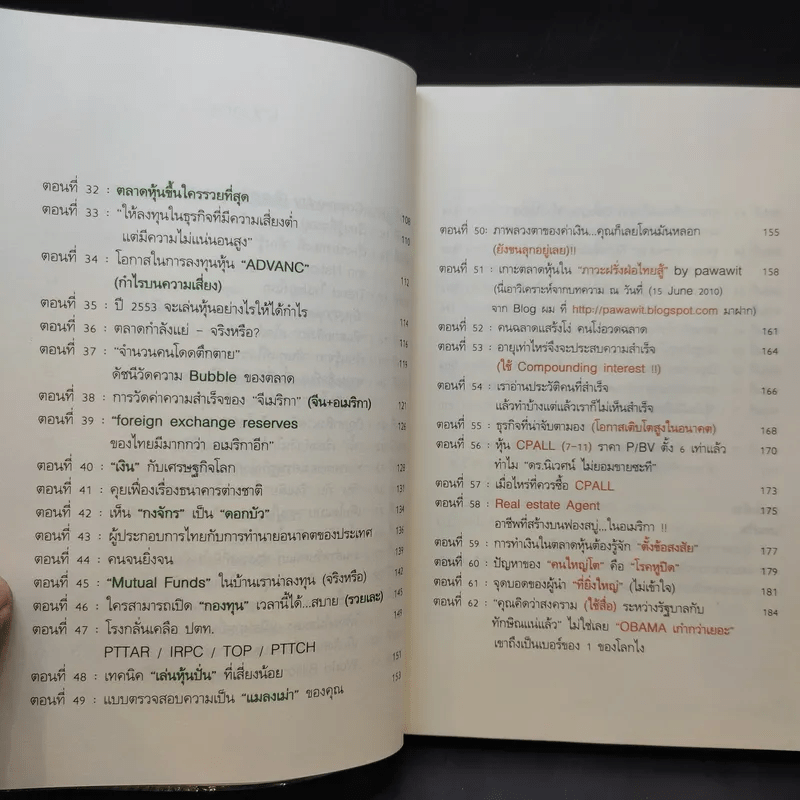 ตอนที่ 32 : ตลาดหุ้นขึ้นใครรวยที่สุด 108
ตอนที่ 33 : "ให้ลงทุนในธุรกิจที่มีความเสี่ยงต่ำ 110
แต่มีความไม่แน่นอนสูง"
ตอนที่ 34 : โอกาสในการลงทุนหุ้น "ADVANC" 112
(กำไรบนความเสี่ยง)
ตอนที่ 35 : ปี 2553 จะเล่นหุ้นอย่างไรให้ได้กำไร 114
ตอนที่ 36 : ตลาดกำลังแย่ - จริงหรือ? 116
ตอนที่ 37 : "จำนวนคนโดดตึกตาย"
ดัชนีวัดความ Bubble ของตลาด
ตอนที่ 38 : การวัดค่าความสำเร็จของ "จีเมริกา" (จีน+อเมริกา) 121
ตอนที่ 39 : "foreign exchange reserves 126
ของไทยมีมากกว่า อเมริกาอีก"
ตอนที่ 40 : "เงิน" กับเศรษฐกิจโลก 128
ตอนที่ 41 : คุยเฟื่องเรื่องธนาคารต่างชาติ 131
ตอนที่ 42 : เห็น "กงจักร" เป็น "ดอกบัว" 134
ตอนที่ 43 : ผู้ประกอบการไทยกับการทำนายอนาคตของประเทศ 136
ตอนที่ 44 : คนจนยิ่งจน
ตอนที่ 45 : "Mutual Funds" ในบ้านเราน่าลงทุน (จริงหรือ) 142
ตอนที่ 46 : ใครสามารถเปิด "กองทุน" เวลานี้ได้...สบาย (รวยเละ)
ตอนที่ 47 : โรงกลั่นเคลือ ปตท. 149
PTTAR / IRPC / TOP / PTTCH
ตอนที่ 48 : เทคนิค "เล่นหุ้นปั่น" ที่เสี่ยงน้อย 151
ตอนที่ 49 : แบบตรวจสอบความเป็น "แมลงเม่า" ของคุณ 153
ตอนที่ 50: ภาพลวงตาของค่าเงิน...คุณก็เลยโดนมันหลอก 155
(ยังขนลุกอยู่เลย)!!
ตอนที่ 51 : เกาะตลาดหุ้นใน "ภาวะฝรั่งฝ่อไทยสู้" by pawawit 158
(นี่เอาวิเคราะห์จากบทความ ณ วันที่ (15 June 2010)
จาก Blog ผม ที่ http://pawawit.blogspot.com มาฝาก)
ตอนที่ 52 : คนฉลาดแสร้งโง่ คนโง่อวดฉลาด 161
ตอนที่ 53 : อายุเท่าไหร่จึงจะประสบความสำเร็จ 164
(ใช้ Compounding interest !!)
ตอนที่ 54 : เราอ่านประวัติคนที่สำเร็จ 166
แล้วทำบ้างแต่แล้วเราก็ไม่เห็นสำเร็จ
ตอนที่ 55 : ธุรกิจที่น่าจับตามอง (โอกาสเติบโตสูงในอนาคต) 168
ตอนที่ 56 : หุ้น CPALL (7-11) ราคา P/BV ตั้ง 6 เท่าแล้ว 170
ทำไม "ดร.นิเวศน์ ไม่ยอมขายซะที"
ตอนที่ 57 : เมื่อไหร่ที่ควรซื้อ CPALL 173
ตอนที่ 58 : Real estate Agent 175
อาชีพที่สร้างบนฟองสบู่...ในอเมริกา !!
ตอนที่ 59 : การทำเงินในตลาดหุ้นต้องรู้จัก "ตั้งข้อสงสัย" 177
ตอนที่ 60 : ปัญหาของ "คนใหญ่โต" คือ "โรคหูปิด" 179
ตอนที่ 61 : จุดบอดของผู้นำ "ที่ยิ่งใหญ่" (ไม่เข้าใจ) 181
ตอนที่ 62 : "คุณคิดว่าสงคราม (ใช้สื่อ) ระหว่างรัฐบาลกับ 184
ทักษิณแน่แล้ว" ไม่ใช่เลย "OBAMA เก๋ากว่าเยอะ"
เขาถึงเป็นเบอร์ของ 1 ของโลกไง